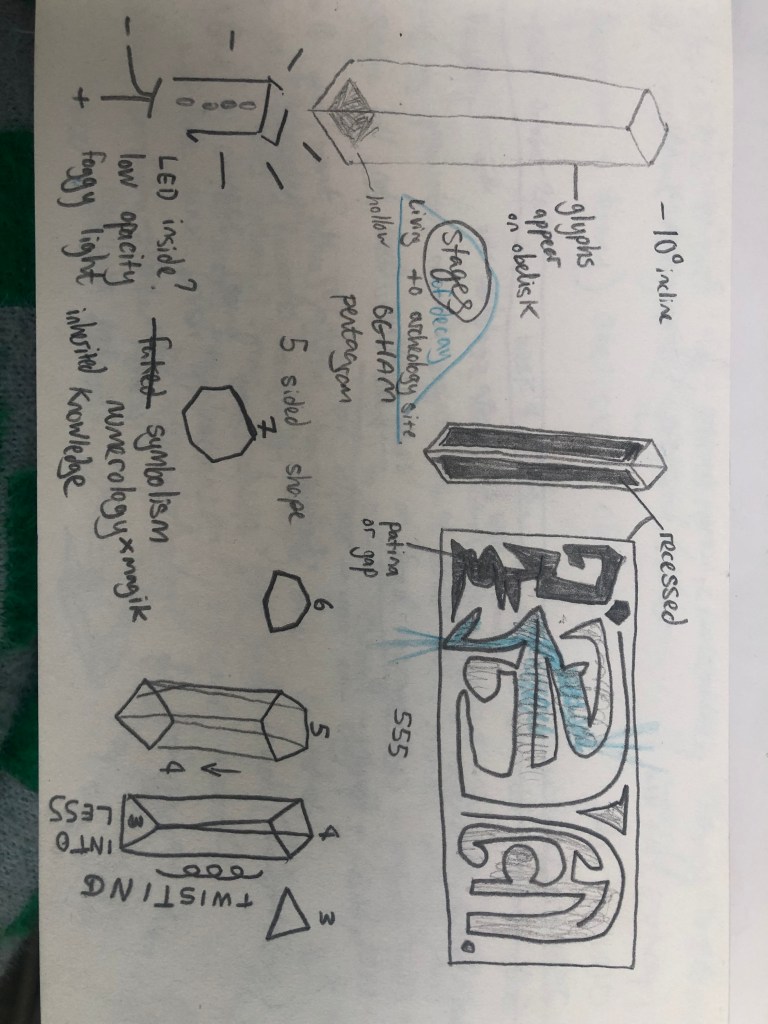 - 10° incline
glyphs
appear
on obelisk
recessed
hollow
Stages
of decay
living to archeology site
OGHAM
pentagram
patina
or gap
5 sided shape
555
7
6
5
4
4
3
3
-
+
LED inside?
low opacity
foggy light
faked symbolism
numerology x magik
inherited knowledge
TWISTING
INTO
LESS